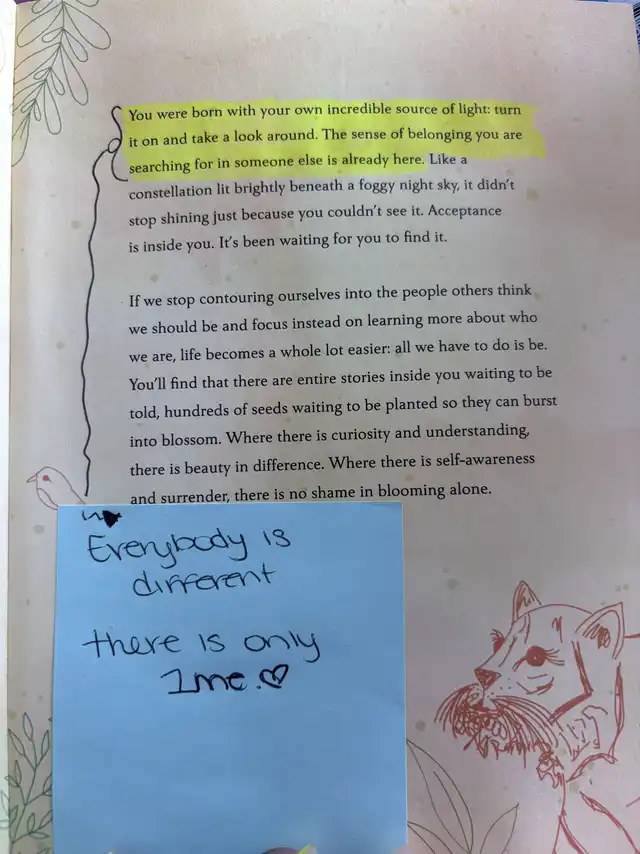 You were born with your own incredible source of light: turn
it on and take a look around. The sense of belonging you are
searching for in someone else is already here. Like a
constellation lit brightly beneath a foggy night sky, it didn't
stop shining just because you couldn't see it. Acceptance
is inside you. It's been waiting for you to find it.
If we stop contouring ourselves into the people others think
we should be and focus instead on learning more about who
we are, life becomes a whole lot easier: all we have to do is be.
You'll find that there are entire stories inside you waiting to be
told, hundreds of seeds waiting to be planted so they can burst
into blossom. Where there is curiosity and understanding,
there is beauty in difference. Where there is self-awareness
and surrender, there is no shame in blooming alone.
Everybody is
different
there is only
1 me.♡